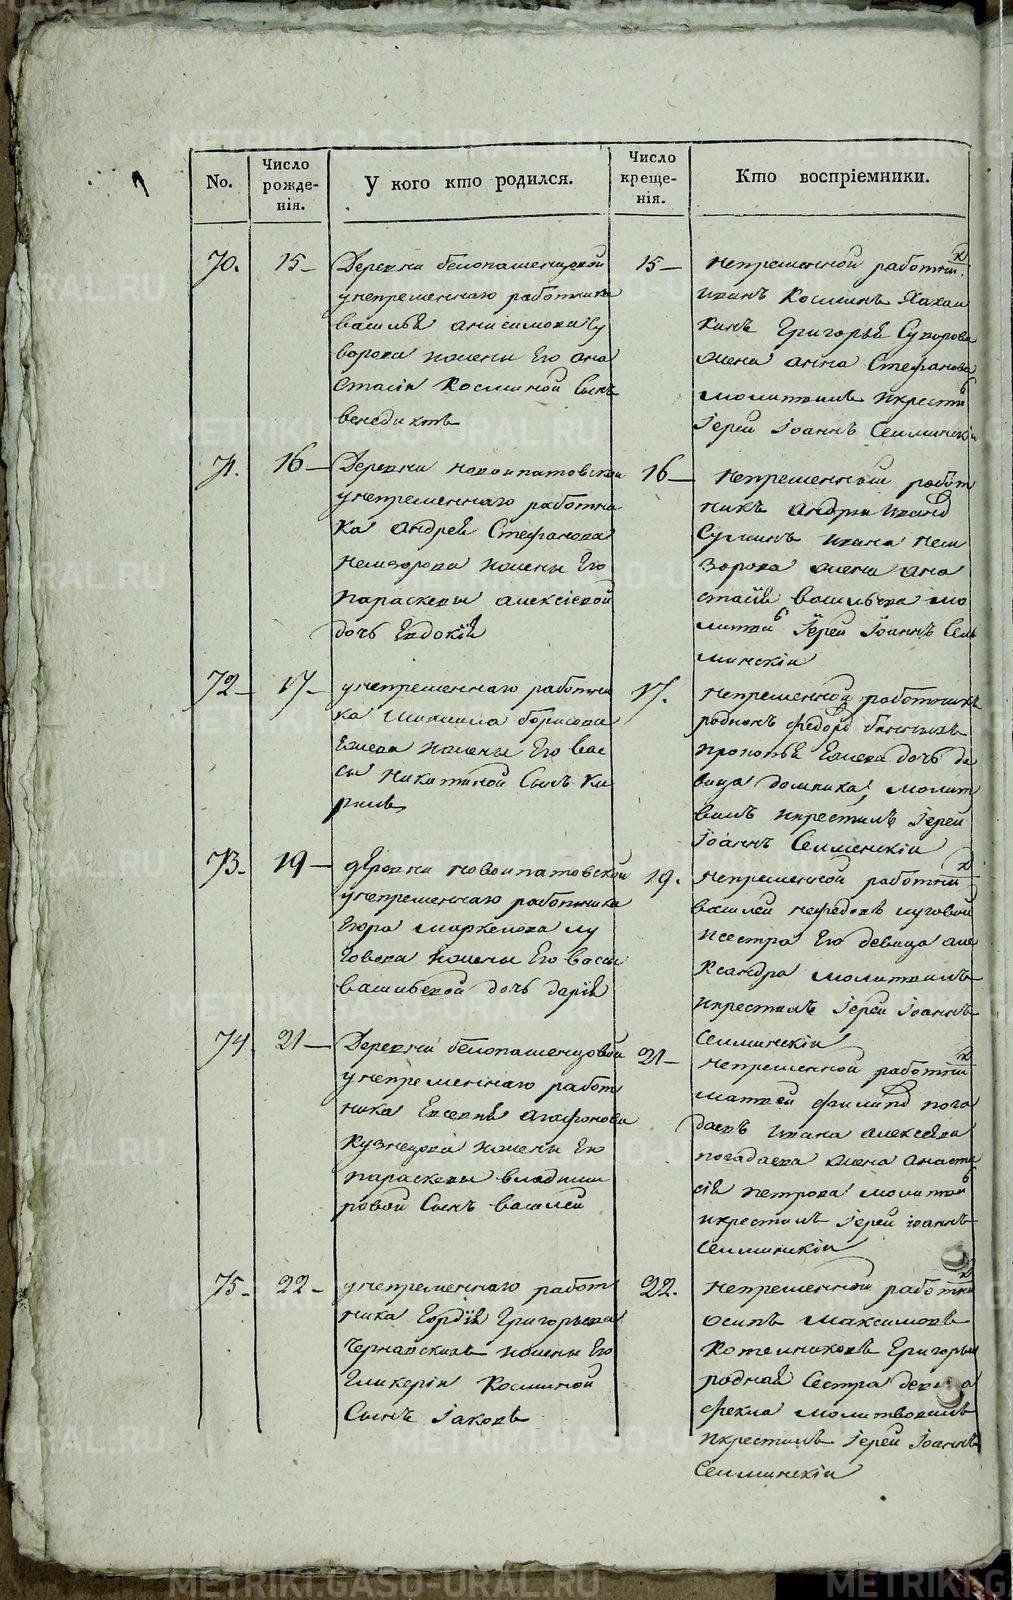 No.
Число рожде-нія.
У кого кто родился.
Число креще-нія.
Кто воспріемники.
70.
15-
Деревни белопашенцовой
унепременнаго работника
василья анисимова Су
ворова ижены Его ана
стасіи Косминой Сынъ
венедиктъ
15-
непременной работникъ
иванъ Косминъ
Григорья Суворова
жена анна Стефанова
молитвилъ икрестилъ
Іерей Іоаннъ Селиминскій
71.
16-
Деревни новоипатовской
унепременнаго работни
ка андрея Стефанова
немзорова ижены Его
параскевы алексіевой
дочь Евдокія
16-
непременный работ
никъ андрей ивановъ
Суминъ ивана нем
зорова жена ана
стасія васильева мо
литвилъ Іерей Іоаннъ Сели
минскій
72-
17-
унепременнаго работни
ка михаила борисова
Ежева ижены Его вас
сы никитиной Сынъ Ки
рилъ
17.
непременной работникъ
родионъ федоровъ
прокопья Ежева дочь де
вица домника, молит
вилъ икрестилъ Іерей
Іоаннъ Селиминскій
73-
19-
деревни новоипатовской
унепременнаго работника
Егора маркелова лу
говова ижены Его васы
васильевой дочь дарія
19.
непременной работникъ
василей нефедовъ луговой
исестра Его девица але
ксандра молитвилъ
икрестилъ Іерей Іоаннъ
Селиминскій
74.
21-
Деревни белопашенцовой
унепременнаго работ
ника Евсевья агафонова
Кузнецова ижены Его
параскевы владими
ровой Сынъ василей
21-
непременной работникъ
матвей филиповъ пога
даевъ ивана алексеева
погадаева жена анаста
сія петрова молитвилъ
икрестилъ Іерей іоаннъ
Селиминскій
75-
22-
унепременнаго работ
ника Гордія Григорьева
ижены Его
Гликеріи Косминой
Сынъ Іаковъ
22.
непременной работникъ
осипъ максимовъ
Котельниковъ Григорья
родная Сестра девица
фекла молитвовилъ
икрестилъ Іерей Іоаннъ
Селиминскій
METRIKI.GASO-URAL.RU